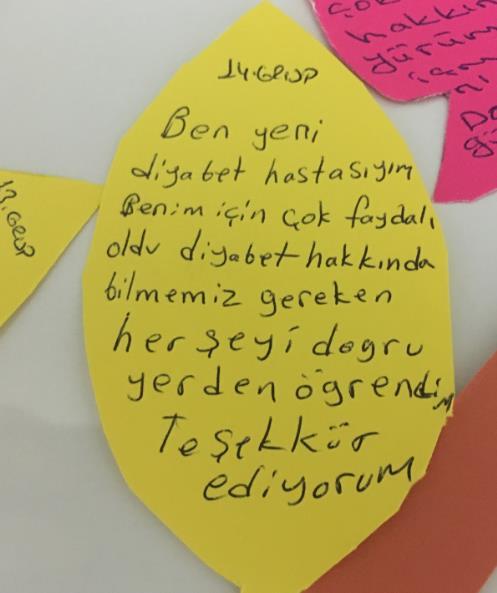 14.GRUP
Ben yeni
diyabet hastasıyım
Benim için çok faydalı
oldu diyabet hakkında
bilmemiz gereken
herşeyi dogru
yerden ögrendim
Teşekkür
ediyorum
13.GRUP
ÇOK
hakkın
yürüm